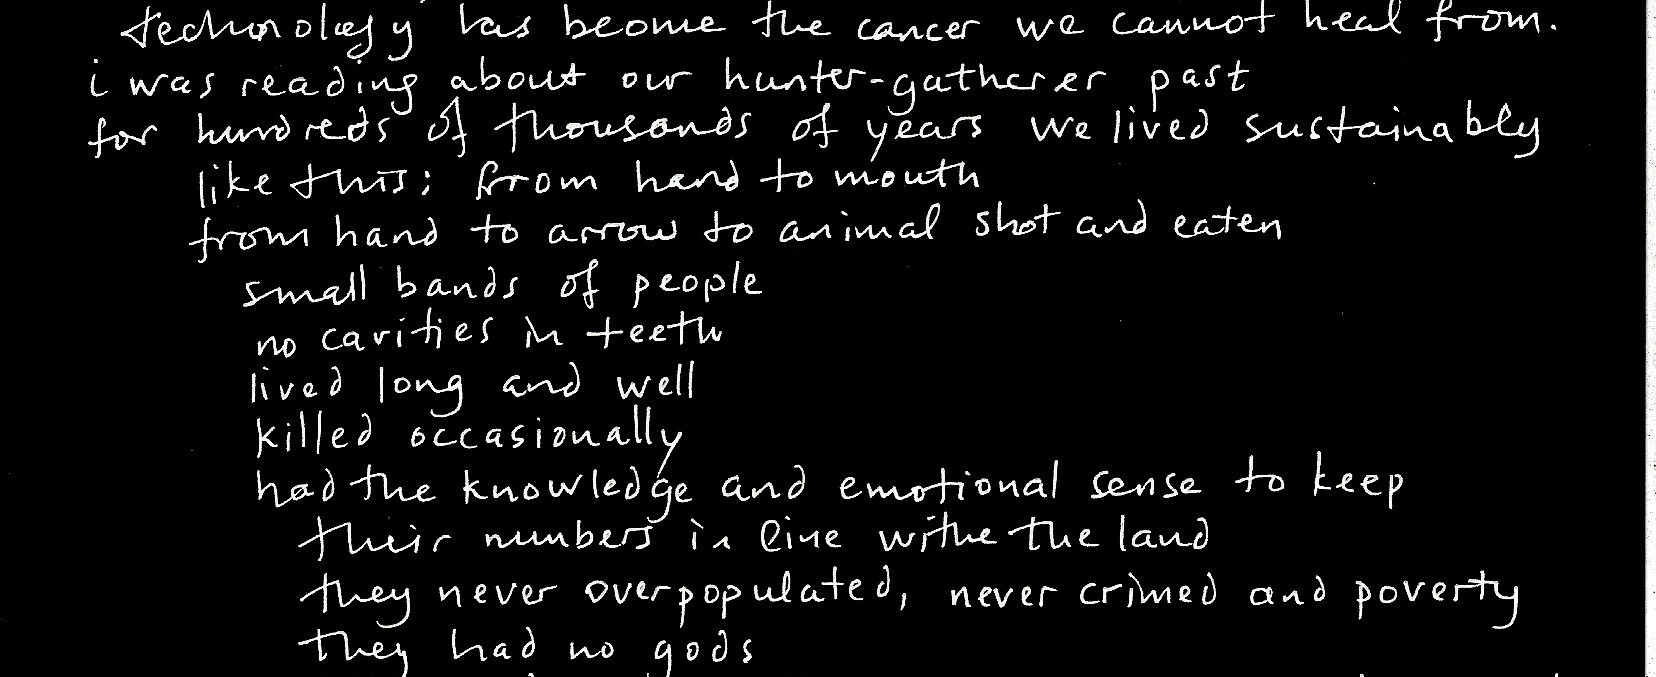 technology has beome the cancer we cannot heal from.
i was reading about our hunter-gatherer past
for hundreds of thousands of years we lived sustainably
like this: from hand to mouth
from hand to arrow to animal shot and eaten
small bands of people
no cavities in teeth
lived long and well
killed occasionally
had the knowledge and emotional sense to keep
their numbers in line withe the land
they never overpopulated, never crimed and poverty
they had no gods